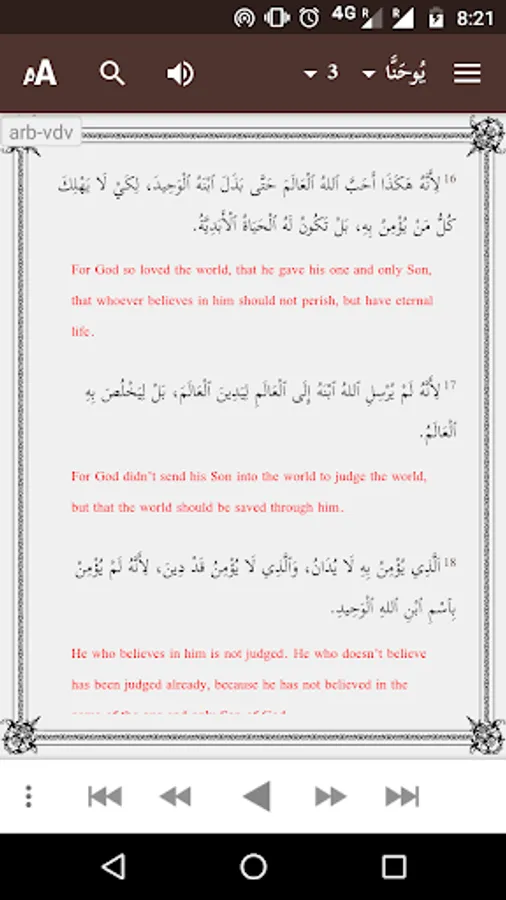 4G R R 8:21
AA 3 يُوحَنَّا
arb-vdv
16 لِأَنَّهُ هَكَذَا أَحَبَّ ٱللهُ ٱلْعَالَمَ حَتَّى بَذَلَ ٱبْنَهُ ٱلْوَحِيدَ، لِكَيْ لَا يَهْلِكَ
كُلُّ مَنْ يُؤْمِنُ بِهِ، بَلْ تَكُونُ لَهُ ٱلْحَيَاةُ ٱلْأَبَدِيَّةُ.
For God so loved the world, that he gave his one and only Son,
that whoever believes in him should not perish, but have eternal
life.
17 لِأَنَّهُ لَمْ يُرْسِلِ ٱللهُ ٱبْنَهُ إِلَى ٱلْعَالَمِ لِيَدِينَ ٱلْعَالَمَ، بَلْ لِيَخْلُصَ بِهِ
ٱلْعَالَمُ.
For God didn't send his Son into the world to judge the world,
but that the world should be saved through him.
18 اَلَّذِي يُؤْمِنُ بِهِ لَا يُدَانُ، وَٱلَّذِي لَا يُؤْمِنُ قَدْ دِينَ، لِأَنَّهُ لَمْ يُؤْمِنْ
بِٱسْمِ ٱبْنِ ٱللهِ ٱلْوَحِيدِ.
He who believes in him is not judged. He who doesn't believe
has been judged already, because he has not believed in the
name of the one and only Son of God